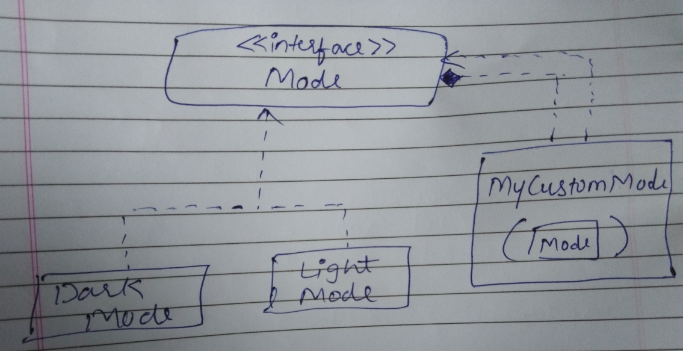 <<interface>>
Mode
MyCustomMode
(Mode)
Dark
Mode
Light
Mode